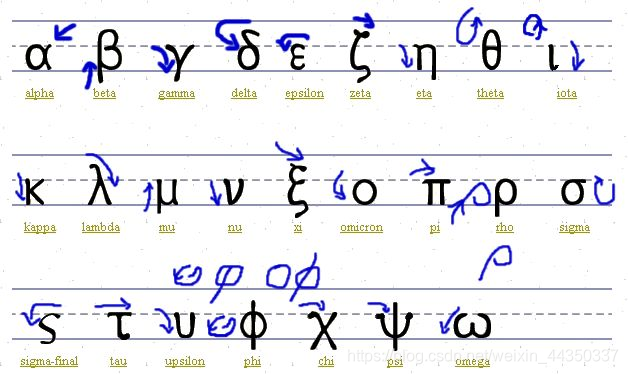 α β γ δ ε ζ η θ ι
alpha beta gamma delta epsilon zeta eta theta iota
κ λ μ ν ξ ο π ρ σ
kappa lambda mu nu xi omicron pi rho sigma
φ ϕ
ς τ υ ϕ χ ψ ω
sigma-final tau upsilon phi chi psi omega
https://blog.csdn.net/weixin_44350337